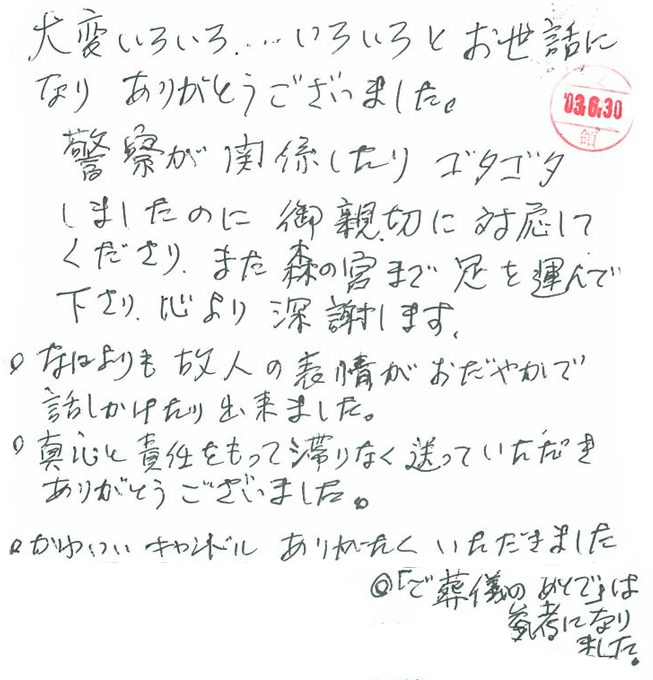 大変いろいろ…いろいろとお世話に
なり ありがとうございました。
'03.6.30
領
警察が関係したり ゴタゴタ
しましたのに 御親切に対応して
くださり、また森の宮まで足を運んで
下さり、心より深謝します。
○なによりも故人の表情がおだやかで
話しかけたり出来ました。
○真心と責任をもって滞りなく送っていただき
ありがとうございました。
○かわいいキャンドル ありがたくいただきました
◎「ご葬儀のあとで」は
参考になり
ました。